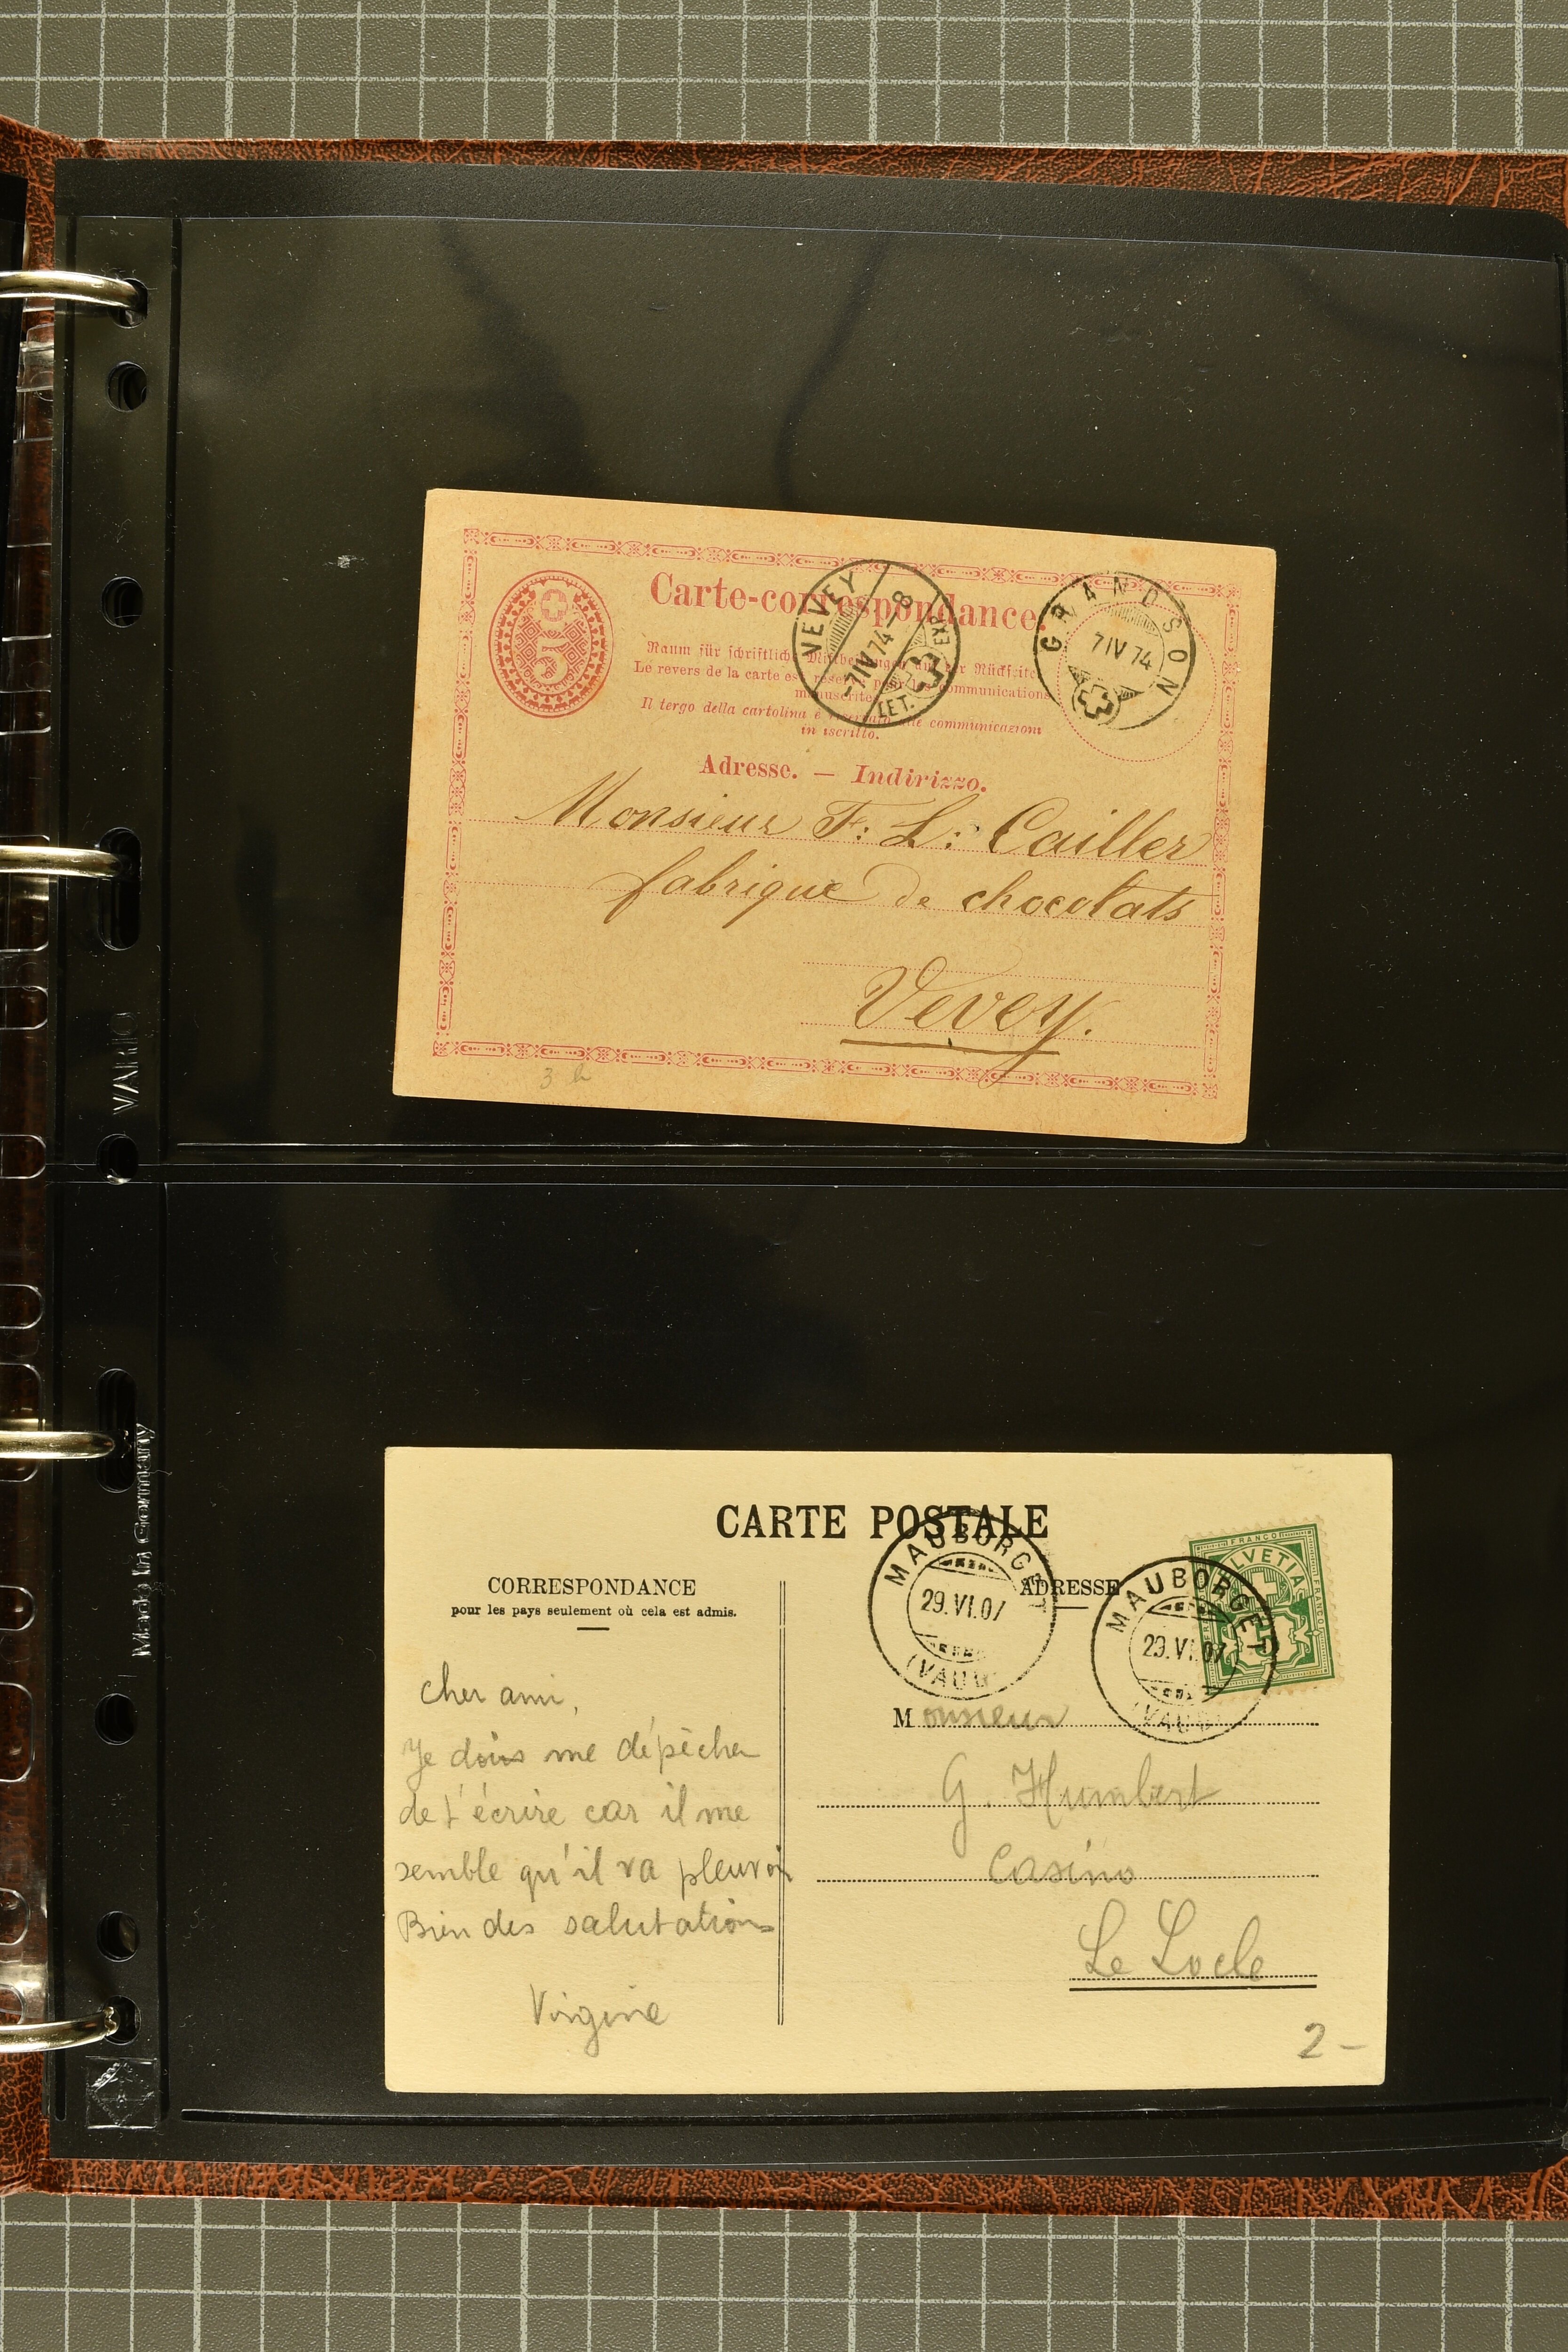 Carte-correspondance.
Raum für schriftliche Mittheilungen auf der Rückseite.
Le revers de la carte est réservé pour les communications
manuscrites.
Il tergo della cartolina è riservato alle communicazioni
in iscritto.
Adresse. — Indirizzo.
5
VEVEY
-7 IV 74 - 8
EXP. LET.
GRANDSON
7 IV 74
Monsieur F: L: Cailler
fabrique de chocolats
Vevey.
3
VARIO
Made in Germany
CARTE POSTALE
CORRESPONDANCE
pour les pays seulement où cela est admis.
ADRESSE
MAUBORGET
29.VI.07
(VAUD)
MAUBORGET
29.VI.07
(VAUD)
FRANCO
HELVETIA
FRANCO
Cher ami,
Je dois me dépêcher
de t'écrire car il me
semble qu'il va pleuvoir
Bien des salutations
Virginie
Monsieur
G. Humbert
Casino
Le Locle
2 –